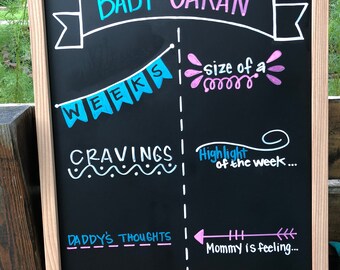 BABY SARAN
WEEKS
size of a
CRAVINGS
Highlight
of the week...
DADDY'S THOUGHTS
Mommy is feeling...